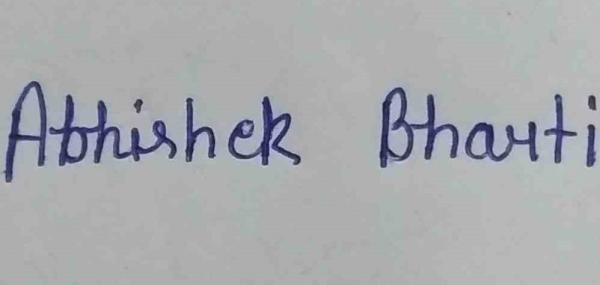 Abhishek Bharti